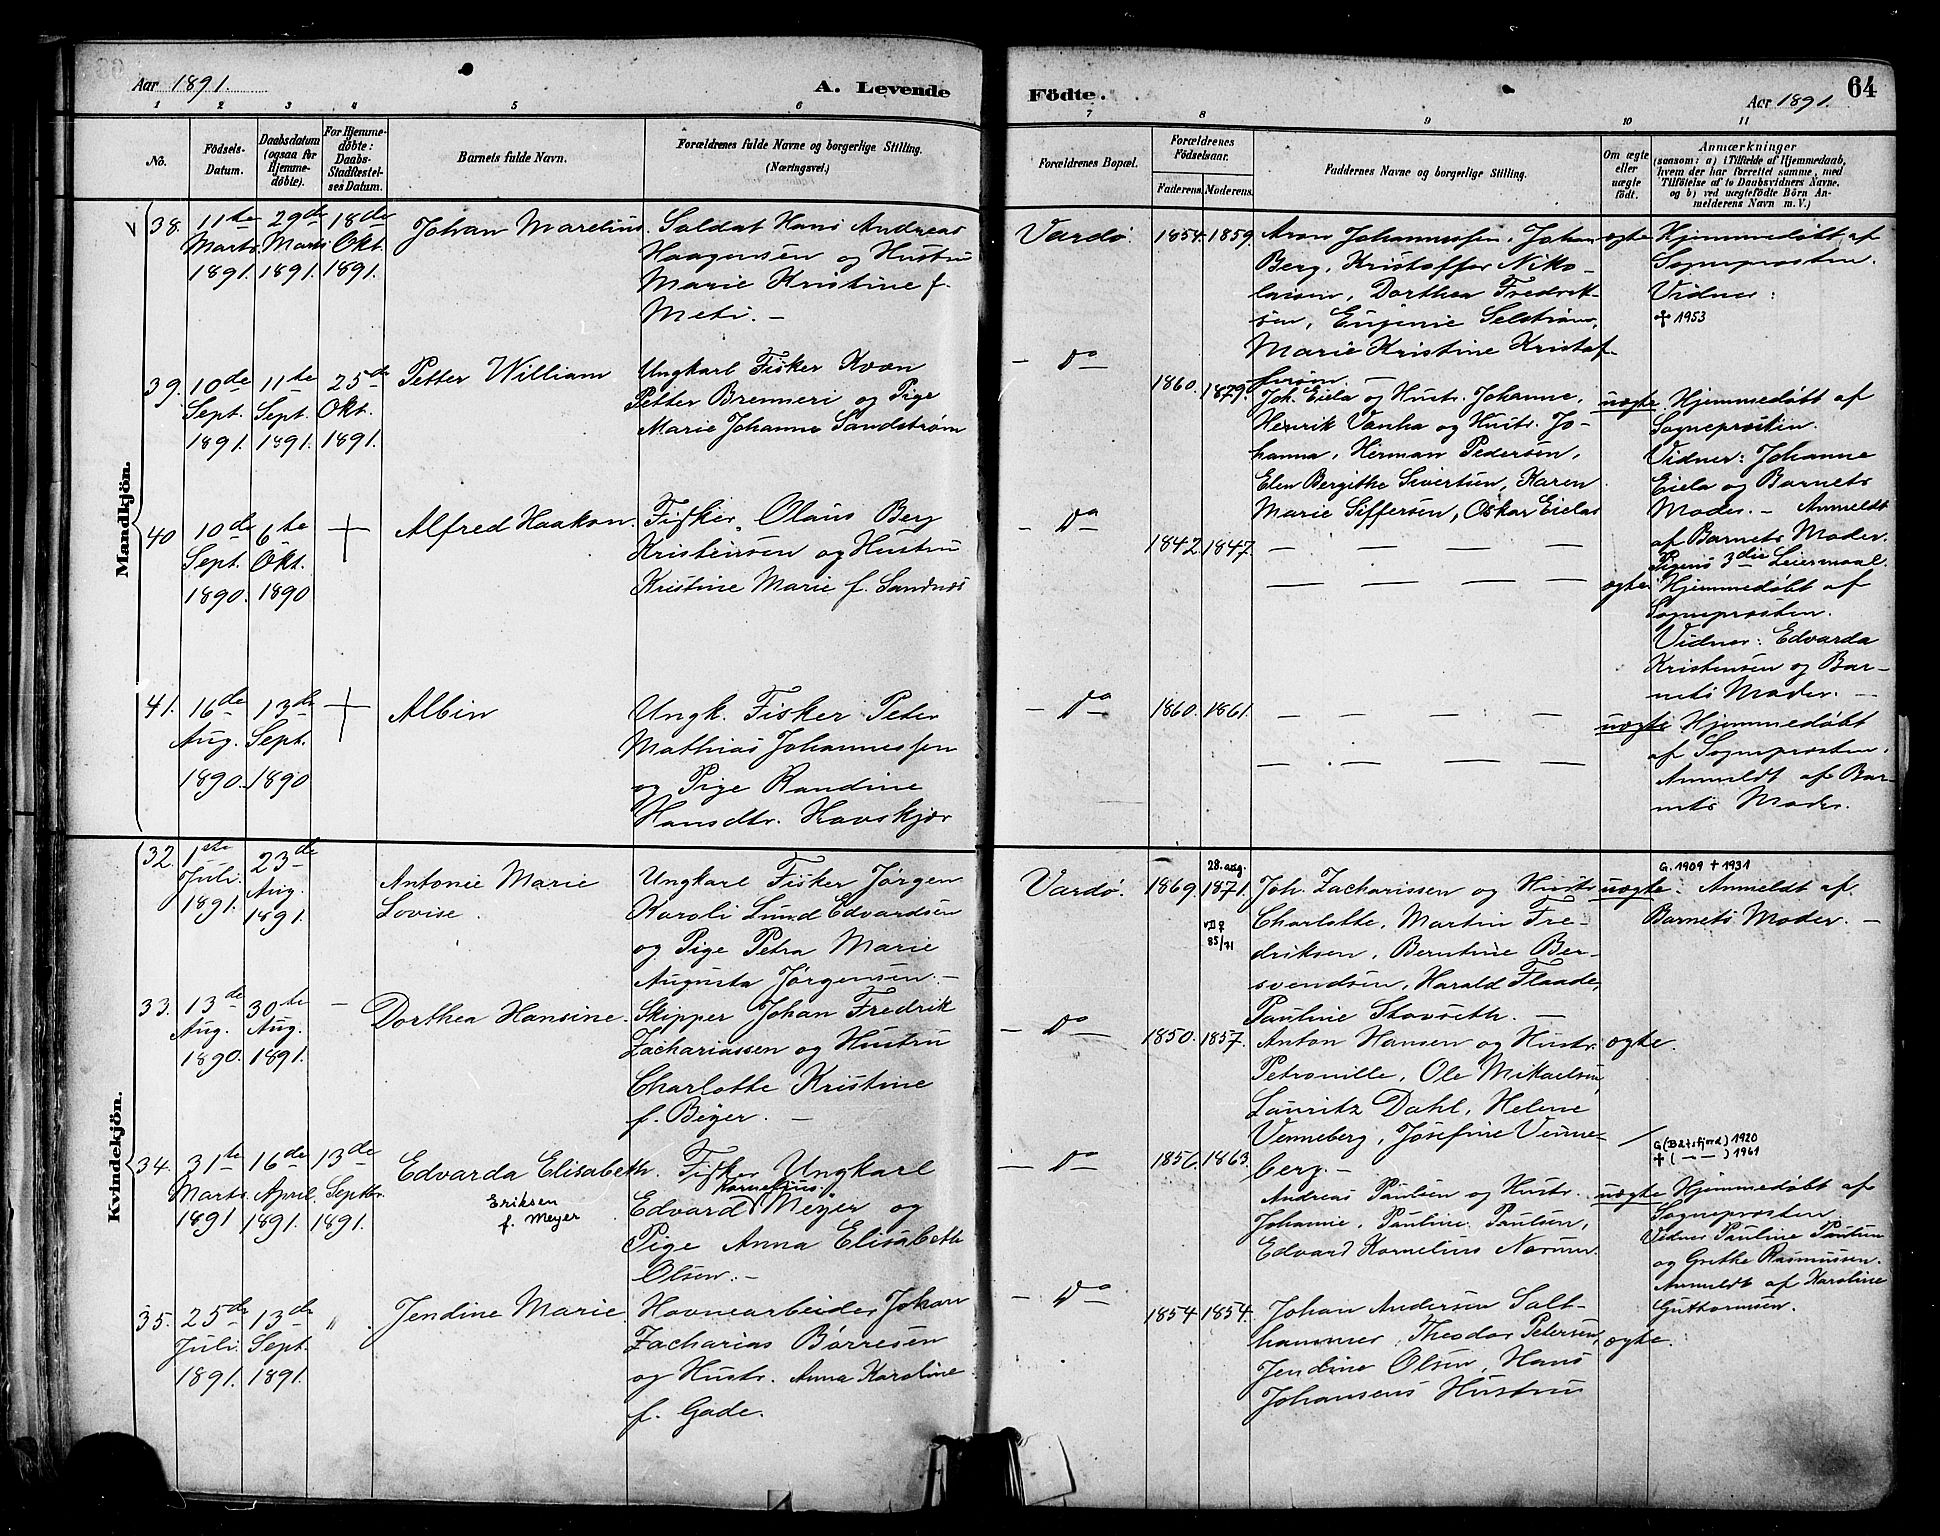 Aar 1891.
A. Levende
Födte.
Aar 1891.
64
1 2 3 4 5 6 7 8 9 10 11
No.
Födsels-Datum.
Daabsdatum (ogsaa for Hjemme-döbte).
For Hjemme-döbte: Daabs-Stadfæstel-ses Datum.
Barnets fulde Navn.
Forældrenes fulde Navne og borgerlige Stilling.
(Næringsvei.)
Forældrenes Bopæl.
Forældrenes Födselsaar.
Faderens. Moderens.
Faddernes Navne og borgerlige Stilling.
Om ægte eller uægte födt.
Anmærkninger
(saasom: a) i Tilfælde af Hjemmedaab,
hvem der har forrettet samme, med
Tilföielse af to Daabsvidners Navne,
og b) ved uægtefödte Börn An-
melderens Navn m. V.)
Mandkjön.
38. 11te Marts 1891. 29de Marts 1891. 18de Okt. 1891.
Johan Marelius.
Soldat Hans Andreas
Haagensen og Hustru
Marie Kristine f.
Meti. —
Vardø. 1854. 1859.
Aron Johannessen, Johan
Berg, Kristoffer Niko-
laisen, Dorthea Fredrik-
sen, Eugenie Selstrøm,
Marie Kristine Kristof-
fersen. —
ægte
Hjemmedøbt af
Sogneprosten.
Vidner:
✝ 1953
39. 10de Sept. 1891. 11te Sept. 1891. 25de Okt. 1891.
Petter William
Ungkarl Fisker Kvæn
Petter Brenneri og Pige
Marie Johanne Sandstrøm
— Do — 1860. 1879.
Joh. Eiela og Hustr. Johanne,
Henrik Vanha og Hustr. Jo-
hanna, Herman Pedersen,
Elen Bergithe Sivertsen, Karen
Marie Siffersen, Oskar Eielas
uægte.
Hjemmedøbt af
Sogneprosten.
Vidner: Johanne
Eiela og Barnets
Moder. — Anmeldt
af Barnets Moder.
Pigens 3die Leiermaal.
40 10de Sept. 1890. 6te Okt. 1890 +
Alfred Haakon.
Fisker Olaus Berg
Kristensen og Hustru
Kristine Marie f. Sandnes
— Do — 1842. 1847.
— — — —
— — — —
ægte
Hjemmedøbt af
Sogneprosten.
Vidner: Edvarda
Kristensen og Bar-
nets Moder. —
41. 16de Aug. 1890. 13de Sept. 1890 +
Albin
Ungk. Fisker Peter
Mathias Johannessen
og Pige Randine
Hansdtr. Havskjær
— Do — 1860. 1861.
— — — —
— — — —
uægte
Hjemmedøbt
af Sogneprosten.
Anmeldt af Bar-
nets Moder.
Kvindekjön.
32. 1ste Juli 1891. 23de Aug. 1891.
Antonie Marie
Lovise.
Ungkarl Fisker Jørgen
Karoli Lund Edvardsen
og Pige Petra Marie
Augusta Jørgensen. —
Vardø. 1869. 28. aug. 1871.
85/71
Joh. Zacharissen og Hustr.
Charlotte, Martin Fre-
driksen, Berntine Ber-
svendsen, Harald Flaade,
Pauline Stavseth. —
uægte.
G. 1909 ✝ 1931
Anmeldt af
Barnets Moder. —
33. 13de Aug. 1890. 30te Aug. 1891. —
Dorthea Hansine.
Skipper Johan Fredrik
Zachariassen og Hustru
Charlotte Kristine
f. Beyer. —
— Do — 1850. 1857.
Anton Hansen og Hustr.
Petronille, Ole Mikaelsen,
Lauritz Dahl, Helene
Venneberg, Josefine Venne-
berg. —
ægte.
34. 31te Marts 1891 16de April 1891. 13de Septbr. 1891.
Edvarda Elisabeth.
Eriksen
f. Meyer
Fisker Ungkarl
Kornelius
Edvard Meyer og
Pige Anna Elisabeth
Olsen. —
— Do — 1856. 1863.
Andreas Paulsen og Hustr.
Johanne, Pauline Paulsen,
Edvard Kornelius Normen.
uægte
G (Båtsfjord) 1920
✝ ( — — ) 1961
Hjemmedøbt af
Sogneprosten.
Vidner Pauline Paulsen
og Grethe Rasmussen.
Anmeldt af Karoline
Guttormsen.
35. 25de Juli 1891. 13de Sept. 1891. "
Jendine Marie.
Havnearbeider Johan
Zacharias Børresen
og Hustr. Anna Karoline
f. Gade.
— Do — 1854 1854.
Johan Andersen Salt-
hammer, Theodor Petersen,
Jendine Olsen, Hans
Johansens Hustru
ægte.